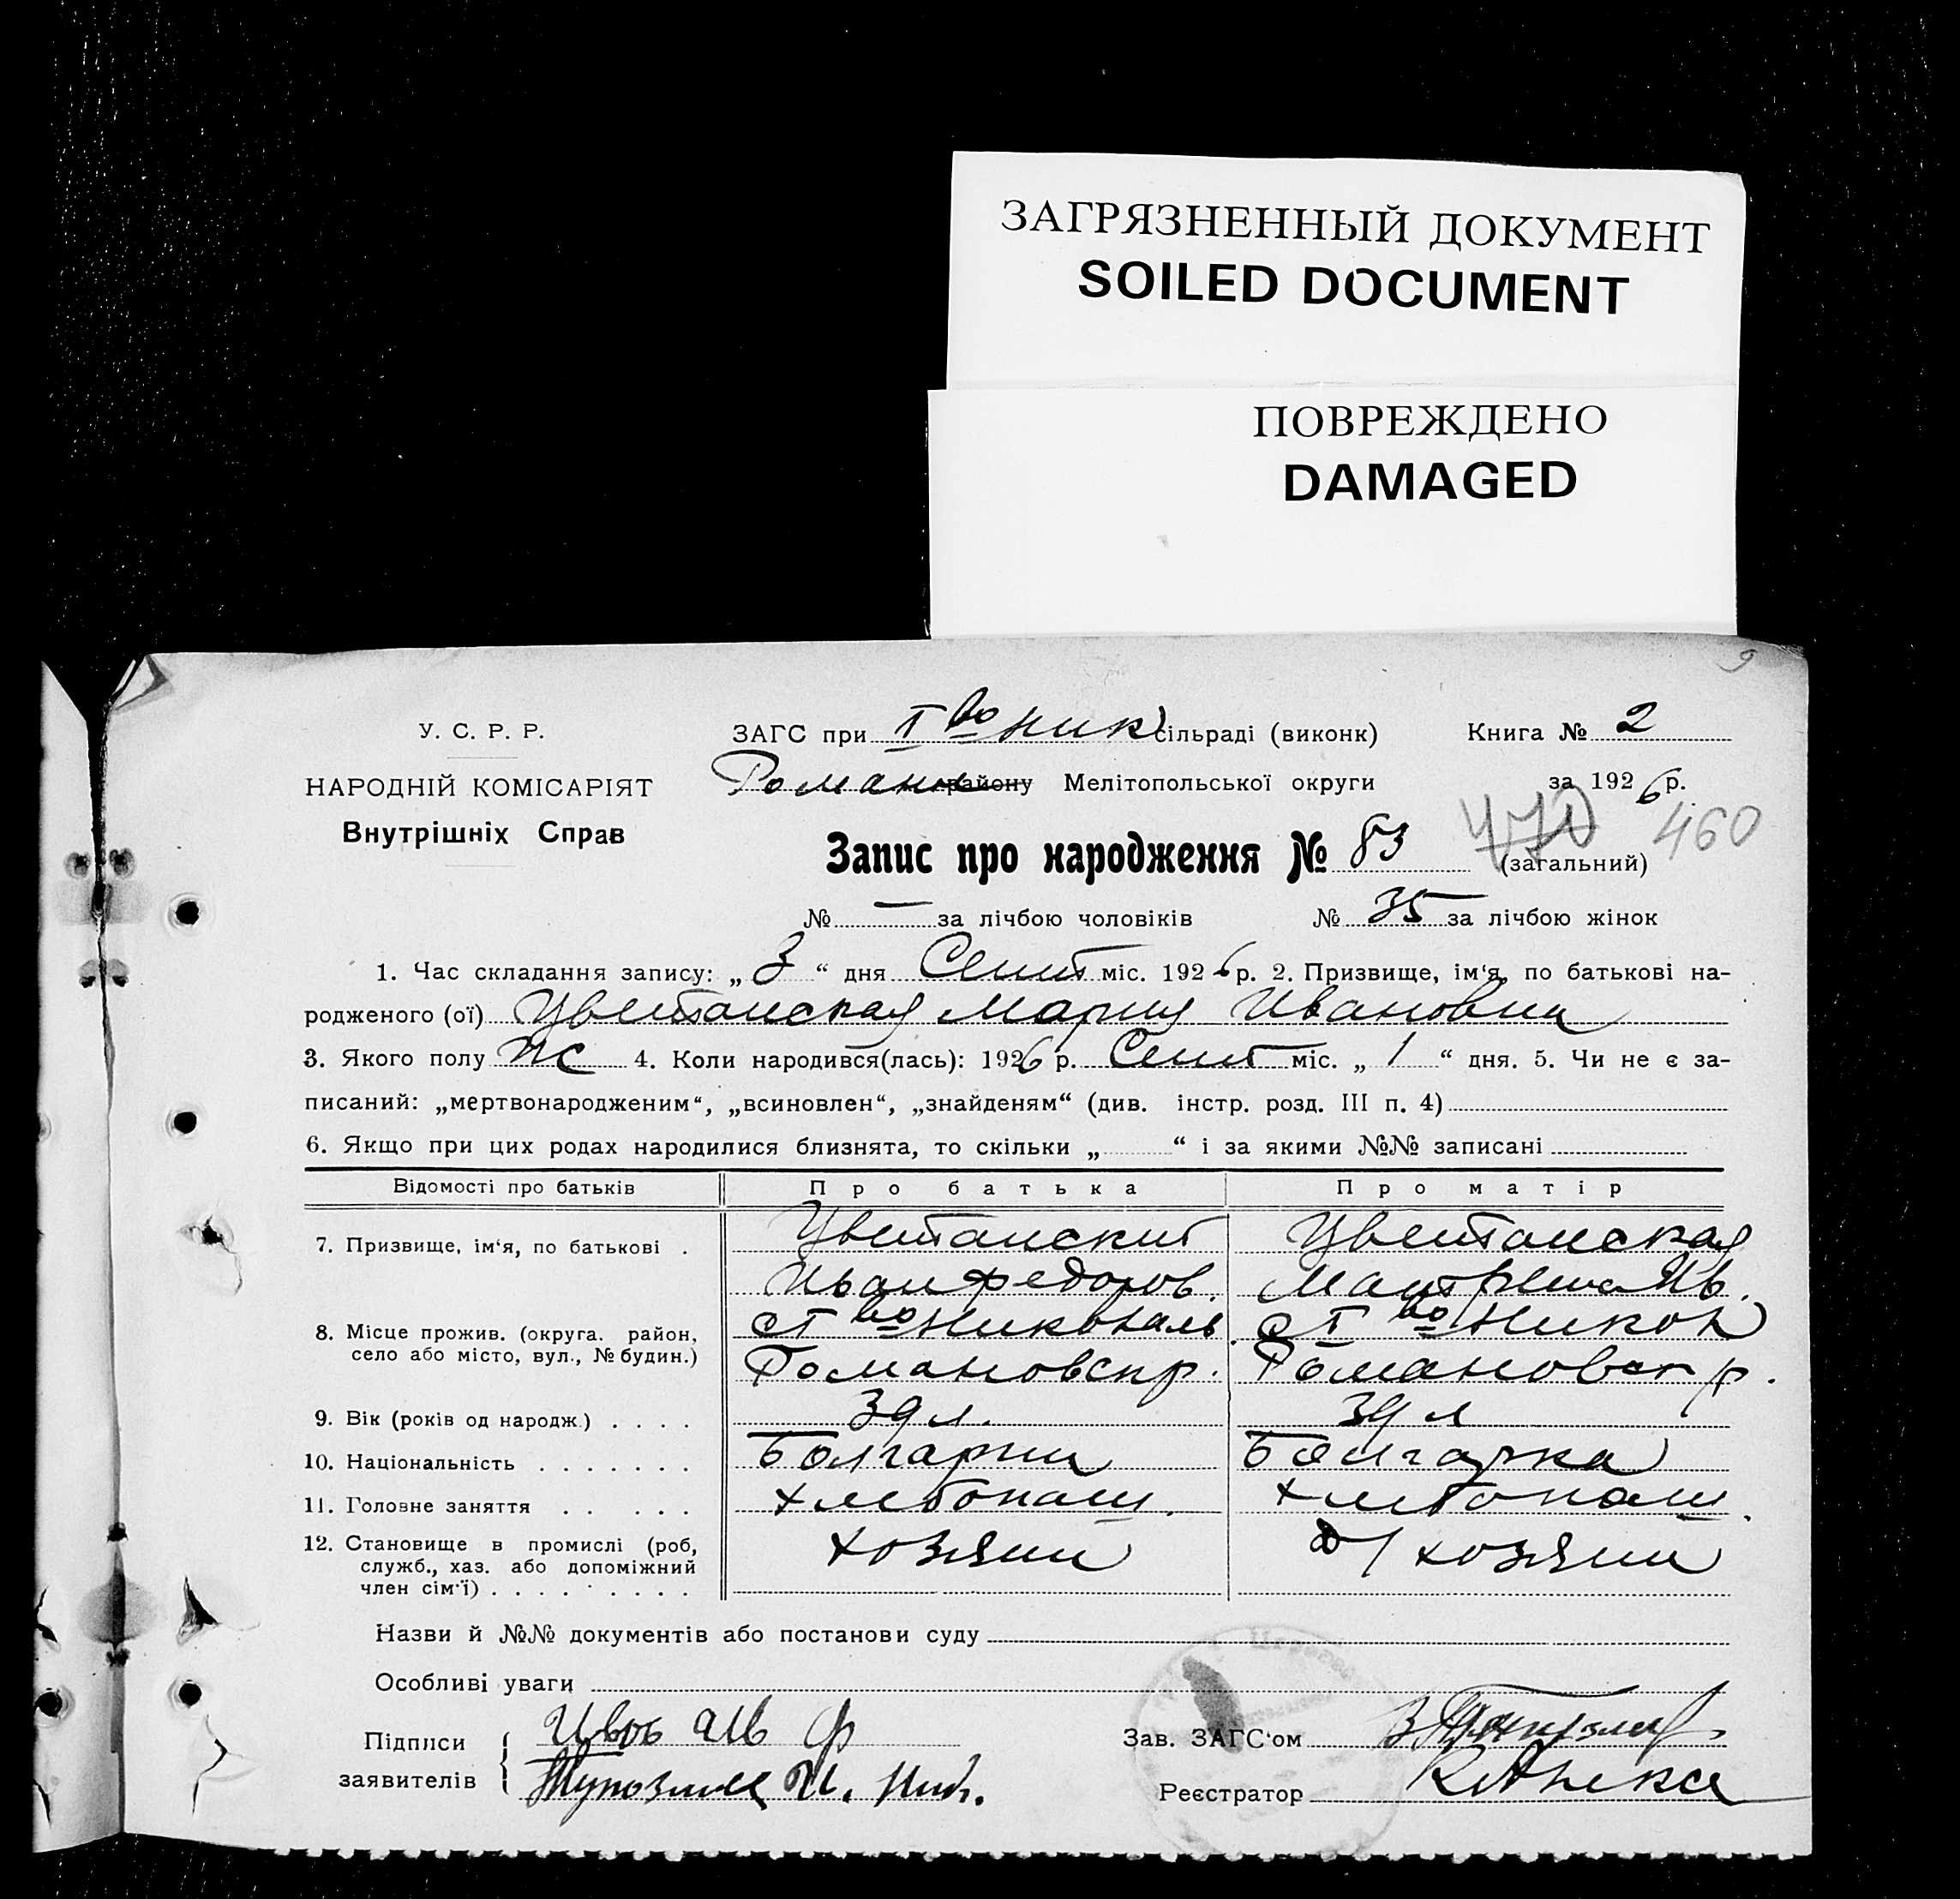 ЗАГРЯЗНЕННЫЙ ДОКУМЕНТ
SOILED DOCUMENT
ПОВРЕЖДЕНО
DAMAGED
9
У. С. Р. Р.
НАРОДНІЙ КОМІСАРІЯТ
Внутрішніх Справ
ЗАГС при І во Ник сільраді (виконк)
Романов району Мелітопольської округи
Книга № 2
за 1926 р.
Запис про народження № 83 (загальний) 470 460
№ — за лічбою чоловіків № 35 за лічбою жінок
1. Час складання запису: „ 3 “ дня Сент міс. 1926 р. 2. Призвище, ім‘я, по батькові на-
родженого (ої) Цветанская Мария Ивановна
3. Якого полу жс 4. Коли народився(лась): 1926 р. Сент міс. „ 1 “ дня. 5. Чи не є за-
писаний: „мертвонародженим“, „всиновлен“, „знайденям“ (див. інстр. розд. III п. 4)
6. Якщо при цих родах народилися близнята, то скільки „ “ і за якими №№ записані
Відомості про батьків Про батька Про матір
7. Призвище, ім‘я, по батькові . Цветанский Цветанская
Иван Федоров. Матрена Ив.
8. Місце прожив. (округа. район, с І во Николаь с І во Никол
село або місто, вул., № будин.) Романовск р. Романовск р.
9. Вік (років од народж.) . . . . 39 л. 39 л
10. Національність . . . . . . . Болгарин Болгарка
11. Головне заняття . . . . . Хлебопаш. Хлебопаш.
12. Становище в промислі (роб, хозяин д/ хозяин
служб., хаз. або допоміжний
член сім‘ї) . . . . . . . . .
Назви й №№ документів або постанови суду
Особливі уваги
Підписи
заявителів
Зав. ЗАГС‘ом
Реєстратор